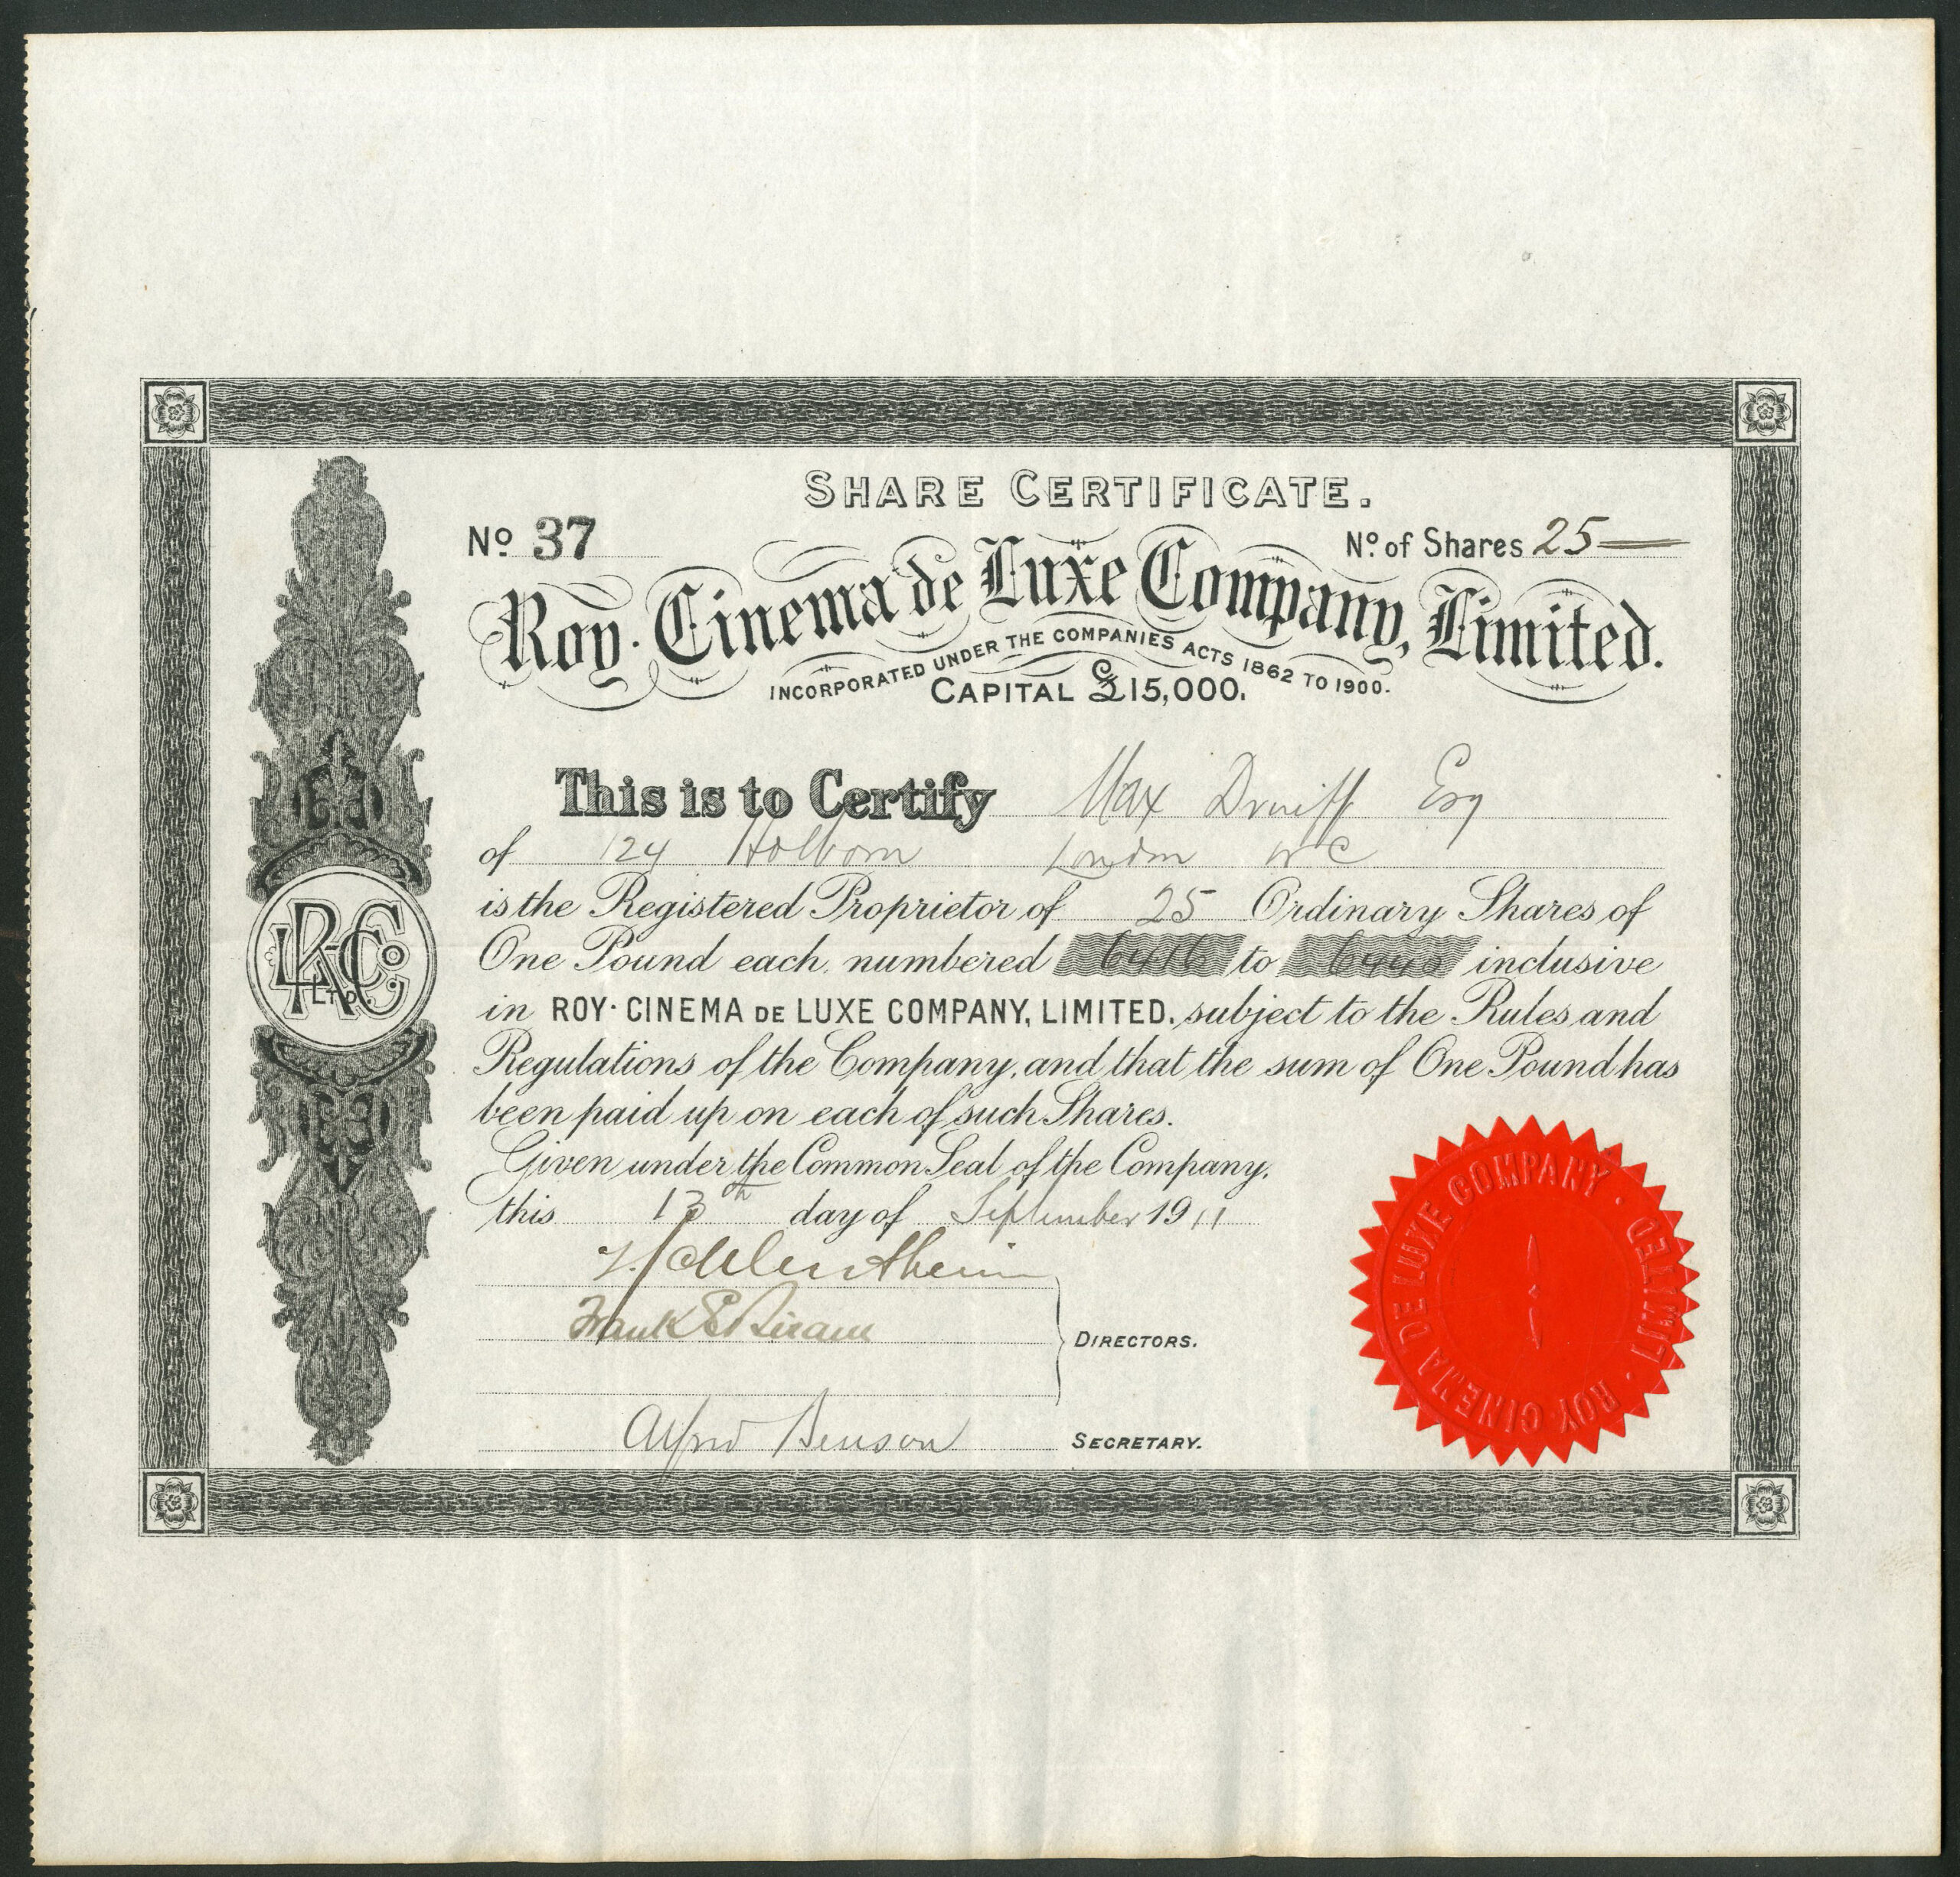 SHARE CERTIFICATE.
No 37
No of Shares 25
Roy·Cinema de Luxe Company, Limited.
INCORPORATED UNDER THE COMPANIES ACTS 1862 TO 1900.
CAPITAL £15,000.
This is to Certify Max Druiff Esq
of 124 Holborn London W C
is the Registered Proprietor of 25 Ordinary Shares of
One Pound each, numbered 6416 to 6440 inclusive
in ROY·CINEMA DE LUXE COMPANY, LIMITED. subject to the Rules and
Regulations of the Company, and that the sum of One Pound has
been paid up on each of such Shares.
Given under the Common Seal of the Company,
this 13th day of September 1911
Frank E
DIRECTORS.
Alfred Benson SECRETARY.
LRCCo
LTD.
ROY·CINEMA DE LUXE COMPANY· LIMITED·